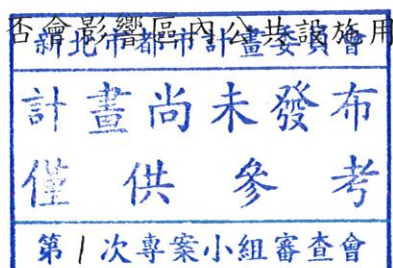 否會影響區內公共設施用
新北市都市計畫委員會
計畫尚未發布
僅供參考
第1次專案小組審查會